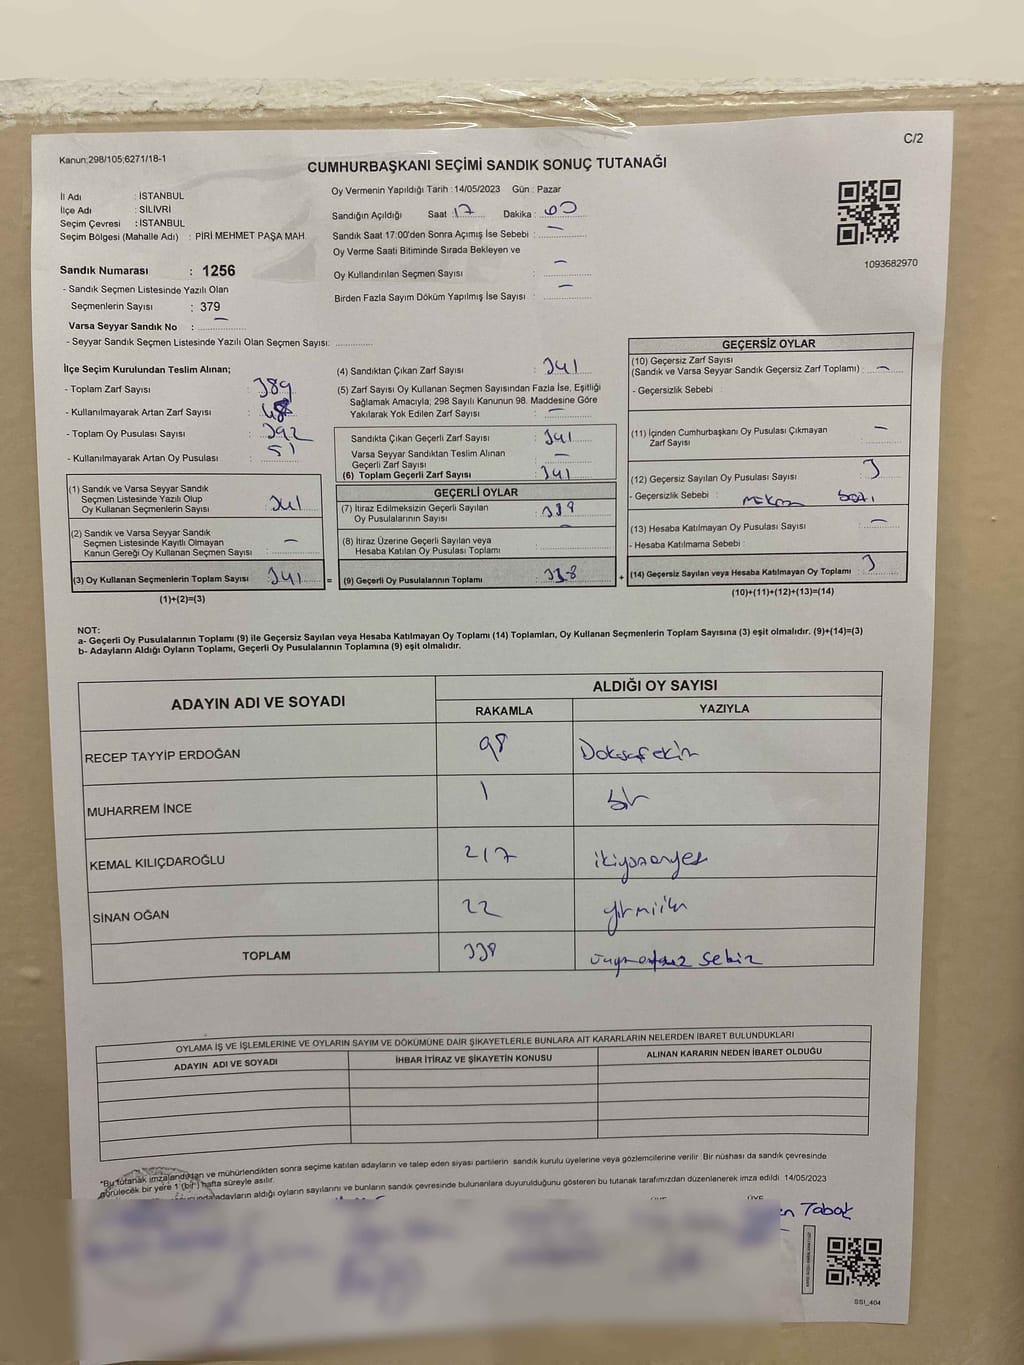 C/2
Kanun;298/105;6271/18-1
CUMHURBAŞKANI SEÇİMİ SANDIK SONUÇ TUTANAĞI
İl Adı : İSTANBUL
İlçe Adı : SİLİVRİ
Seçim Çevresi : İSTANBUL
Seçim Bölgesi (Mahalle Adı) : PİRİ MEHMET PAŞA MAH.
Oy Vermenin Yapıldığı Tarih : 14/05/2023 Gün : Pazar
Sandığın Açıldığı Saat : 17 Dakika :
Sandık Saat 17:00'den Sonra Açılmış İse Sebebi : —
Oy Verme Saati Bitiminde Sırada Bekleyen ve
Oy Kullandırılan Seçmen Sayısı : —
Birden Fazla Sayım Döküm Yapılmış İse Sayısı : —
1093682970
Sandık Numarası : 1256
- Sandık Seçmen Listesinde Yazılı Olan
Seçmenlerin Sayısı : 379
Varsa Seyyar Sandık No : —
- Seyyar Sandık Seçmen Listesinde Yazılı Olan Seçmen Sayısı:
İlçe Seçim Kurulundan Teslim Alınan;
- Toplam Zarf Sayısı : 389
- Kullanılmayarak Artan Zarf Sayısı : 48
- Toplam Oy Pusulası Sayısı : 392
- Kullanılmayarak Artan Oy Pusulası : 51
(1) Sandık ve Varsa Seyyar Sandık
Seçmen Listesinde Yazılı Olup
Oy Kullanan Seçmenlerin Sayısı : 341
(2) Sandık ve Varsa Seyyar Sandık
Seçmen Listesinde Kayıtlı Olmayan
Kanun Gereği Oy Kullanan Seçmen Sayısı : —
(3) Oy Kullanan Seçmenlerin Toplam Sayısı : 341
(1)+(2)=(3)
(4) Sandıktan Çıkan Zarf Sayısı : 341
(5) Zarf Sayısı Oy Kullanan Seçmen Sayısından Fazla İse, Eşitliği
Sağlamak Amacıyla; 298 Sayılı Kanunun 98. Maddesine Göre
Yakılarak Yok Edilen Zarf Sayısı : —
Sandıkta Çıkan Geçerli Zarf Sayısı : 341
Varsa Seyyar Sandıktan Teslim Alınan
Geçerli Zarf Sayısı : —
(6) Toplam Geçerli Zarf Sayısı : 341
GEÇERLİ OYLAR
(7) İtiraz Edilmeksizin Geçerli Sayılan
Oy Pusulalarının Sayısı :
(8) İtiraz Üzerine Geçerli Sayılan veya
Hesaba Katılan Oy Pusulası Toplamı : —
= (9) Geçerli Oy Pusulalarının Toplamı : 338
GEÇERSİZ OYLAR
(10) Geçersiz Zarf Sayısı
(Sandık ve Varsa Seyyar Sandık Geçersiz Zarf Toplamı) : —
- Geçersizlik Sebebi :
(11) İçinden Cumhurbaşkanı Oy Pusulası Çıkmayan
Zarf Sayısı : —
(12) Geçersiz Sayılan Oy Pusulası Sayısı : 3
- Geçersizlik Sebebi :
(13) Hesaba Katılmayan Oy Pusulası Sayısı : —
- Hesaba Katılmama Sebebi :
+ (14) Geçersiz Sayılan veya Hesaba Katılmayan Oy Toplamı : 3
(10)+(11)+(12)+(13)=(14)
NOT:
a- Geçerli Oy Pusulalarının Toplamı (9) ile Geçersiz Sayılan veya Hesaba Katılmayan Oy Toplamı (14) Toplamları, Oy Kullanan Seçmenlerin Toplam Sayısına (3) eşit olmalıdır. (9)+(14)=(3)
b- Adayların Aldığı Oyların Toplamı, Geçerli Oy Pusulalarının Toplamına (9) eşit olmalıdır.
ADAYIN ADI VE SOYADI ALDIĞI OY SAYISI
RAKAMLA YAZIYLA
RECEP TAYYİP ERDOĞAN 98 Doksansekiz
MUHARREM İNCE 1 bir
KEMAL KILIÇDAROĞLU 217 ikiyüzonyedi
SİNAN OĞAN 22 yirmiiki
TOPLAM 338 üçyüzotuz sekiz
OYLAMA İŞ VE İŞLEMLERİNE VE OYLARIN SAYIM VE DÖKÜMÜNE DAİR ŞİKAYETLERLE BUNLARA AİT KARARLARIN NELERDEN İBARET BULUNDUKLARI
ADAYIN ADI VE SOYADI İHBAR İTİRAZ VE ŞİKAYETİN KONUSU ALINAN KARARIN NEDEN İBARET OLDUĞU
"Bu tutanak imzalandıktan ve mühürlendikten sonra seçime katılan adayların ve talep eden siyasi partilerin sandık kurulu üyelerine veya gözlemcilerine verilir. Bir nüshası da sandık çevresinde
görülecek bir yere 1 (bir) hafta süreyle asılır.
adayların aldığı oyların sayılarını ve bunların sandık çevresinde bulunanlara duyurulduğunu gösteren bu tutanak tarafımızdan düzenlenerek imza edildi. 14/05/2023
ÜYE
Tabak
SSI_404